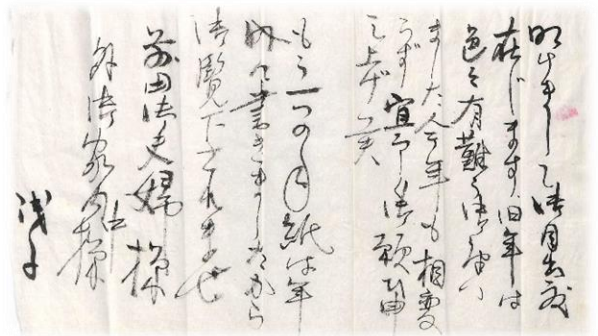 明けまして御目出度
存じます旧年は
色々有難う御座い
ました今年も相変
らず宜しく御願ひ申
し上げ
もう一つの手紙は年
内に書きましたから
御覧下されませ
前田御夫婦様
外御家内 様